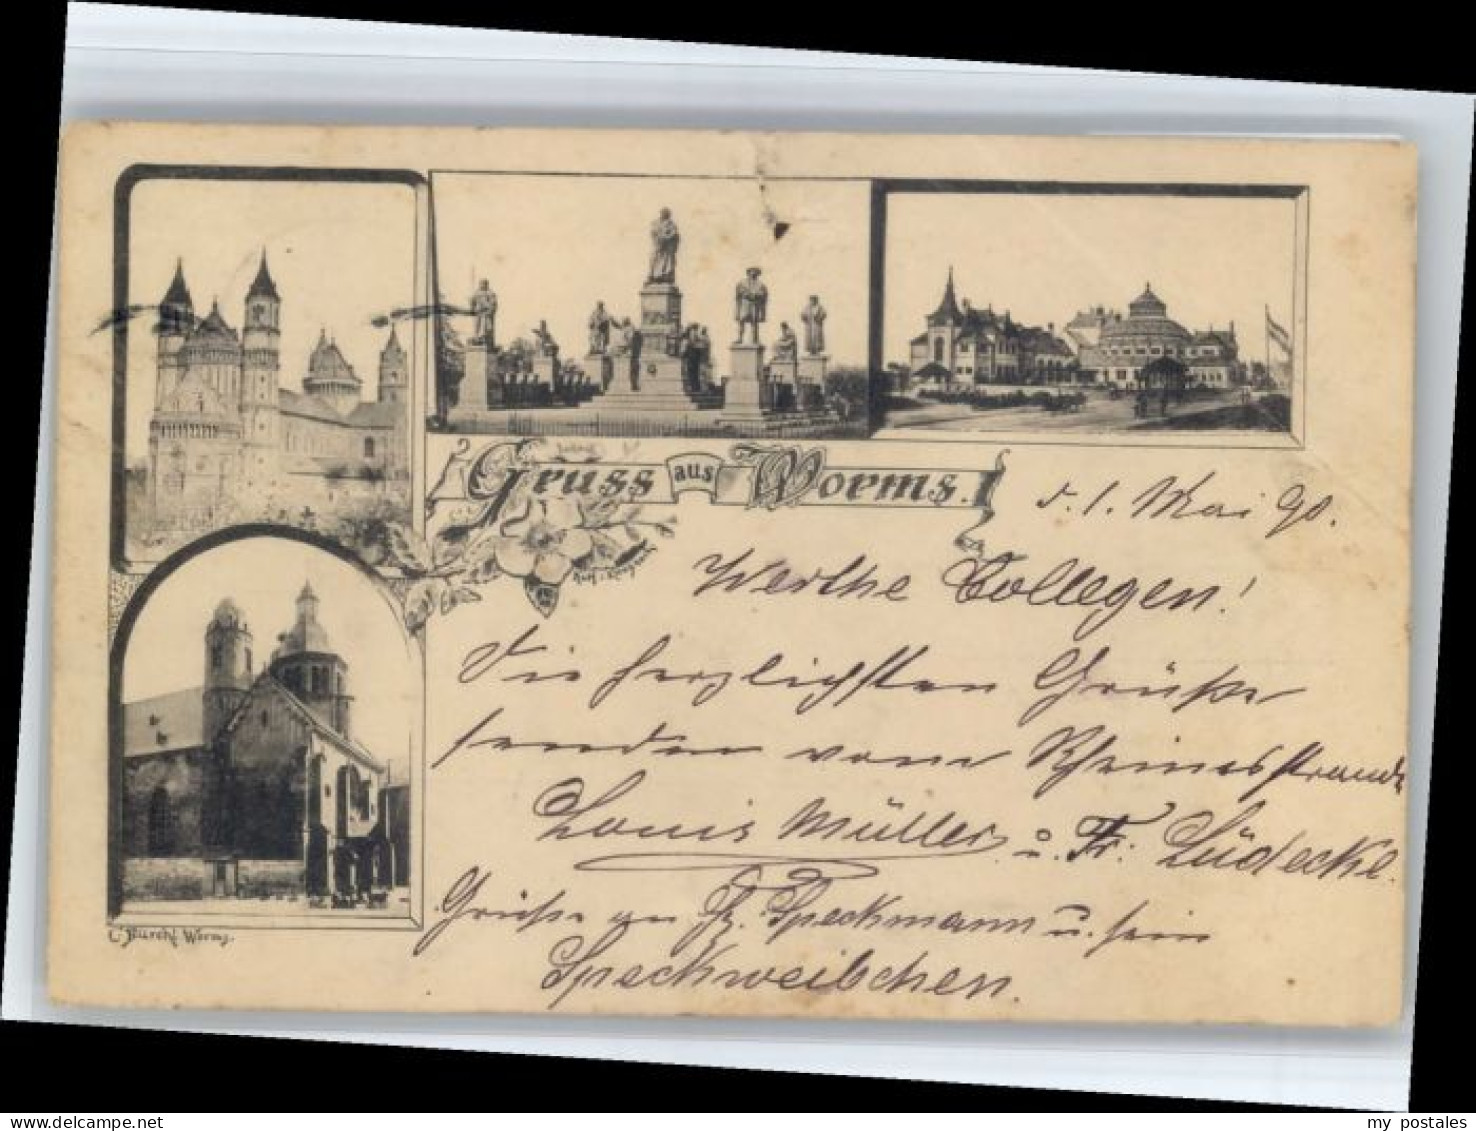 Gruss aus Worms.
d. 1. Mai 90.
Werthe Collegen!
Die herzlichsten Grüße
senden vom Rheinesstrande
Louis Müller u. Fr. Lüdecke.
Grüße an Fr. Speckmann u. sein
Speckweibchen.
Worms.
my postales